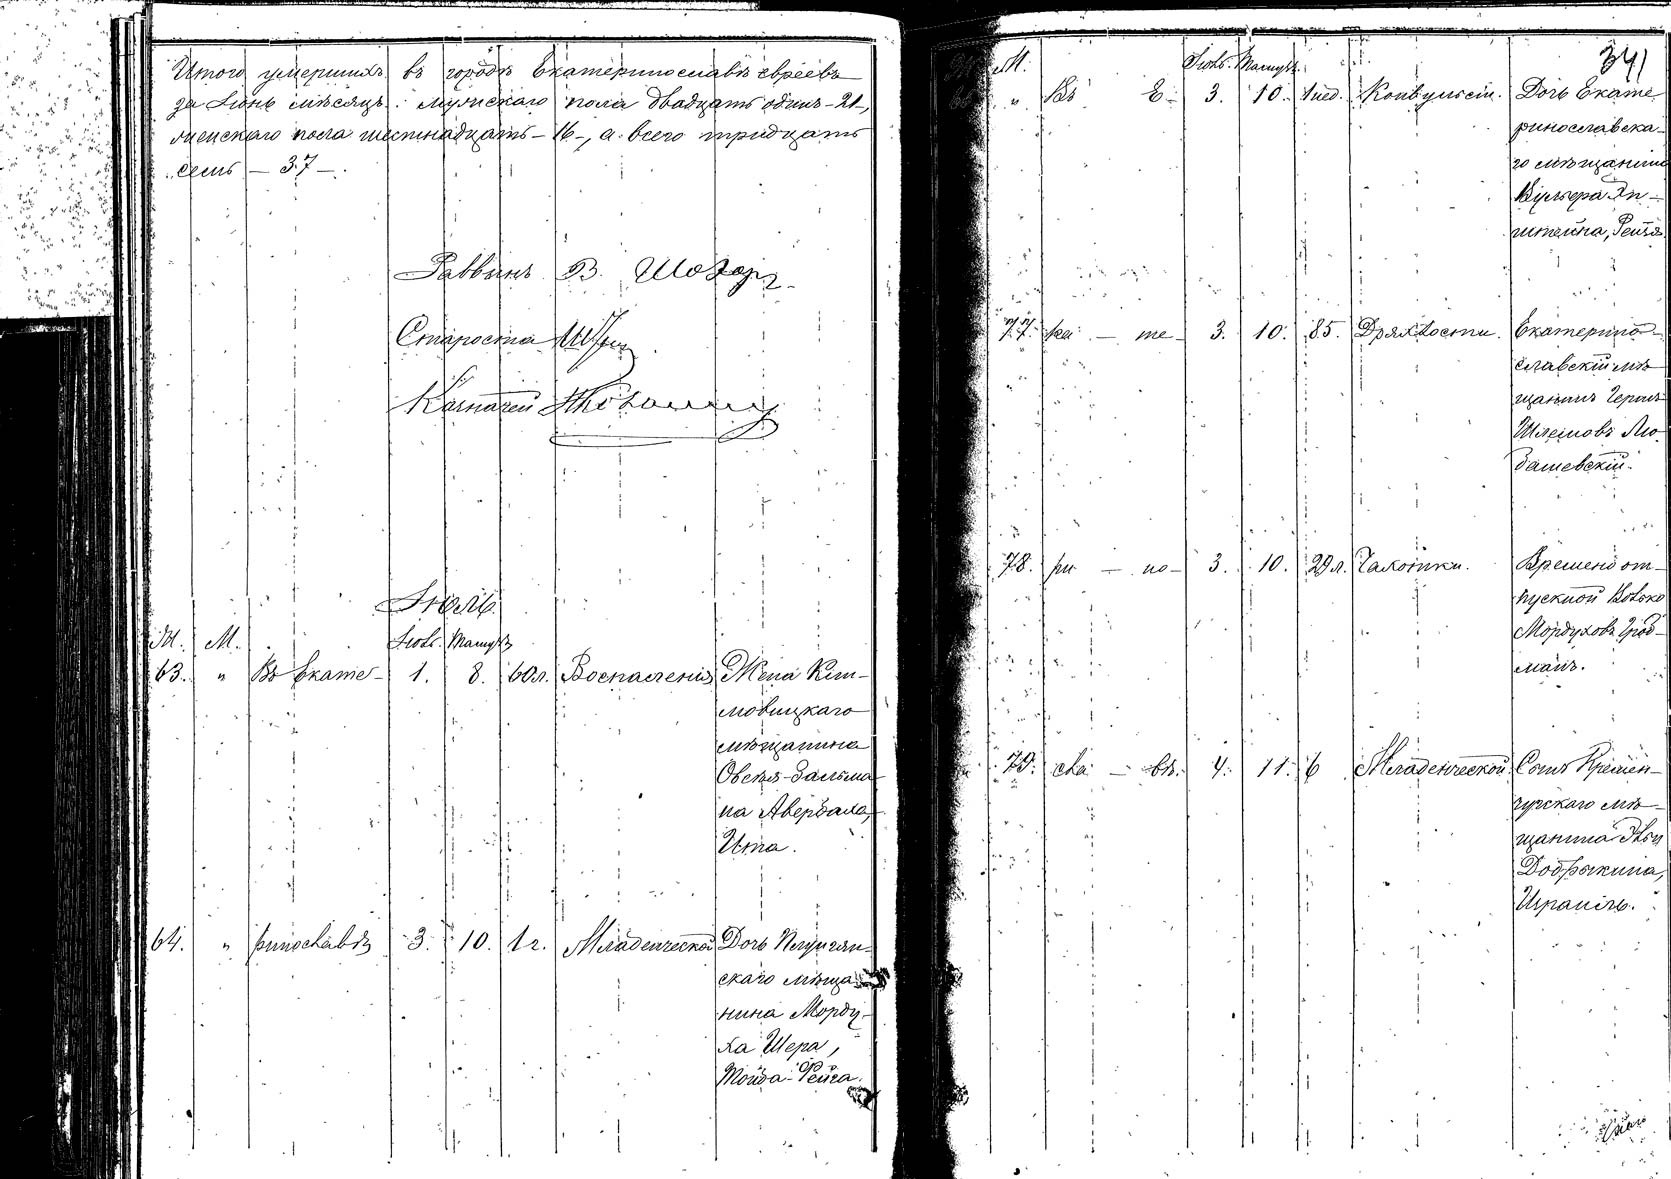 Итого умершихъ въ городѣ Екатеринославѣ евреевъ
за Іюнь мѣсяцъ: мужскаго пола двадцать одинъ - 21 -,
женскаго пола шестнадцать - 16 -, а всего тридцать
семь - 37 -.
Раввинъ В. Шохоръ
Староста
Казначей
Іюль.
Ж. М. Іюль. Тамузъ
63. " Въ Екате- 1. 8. 60 л. Воспаленія Жена Кли-
мовицкаго
мѣщанина
Овсея-Залма-
на Авербаха,
Ита.
64. " ринославѣ 3. 10. 1 г. Младенческой Дочь
скаго мѣща-
нина Морду-
ха Шера,
Тойба-Рейза.
341
М. Іюль. Тамузъ
65. " Въ Е- 3. 10. 1 нед. Конвульсіи. Дочь Екате-
ринославска-
го мѣщанина
Вульфа Эп-
штейна, Рейзя.
77. ка - те- 3. 10. 85. Дряхлости. Екатерино-
славскій мѣ-
щанинъ Гершъ
Шлемовъ Лю-
башевскій.
78. ри - но- 3. 10. 29 л. Чахотки. Временно от-
пускной Вовко
Мордуховъ Грод-
манъ.
79. сла - вѣ. 4. 11. 6 Младенческой. Сынъ Кремен-
чугскаго мѣ-
щанина
Добрыкина,
Израиль.